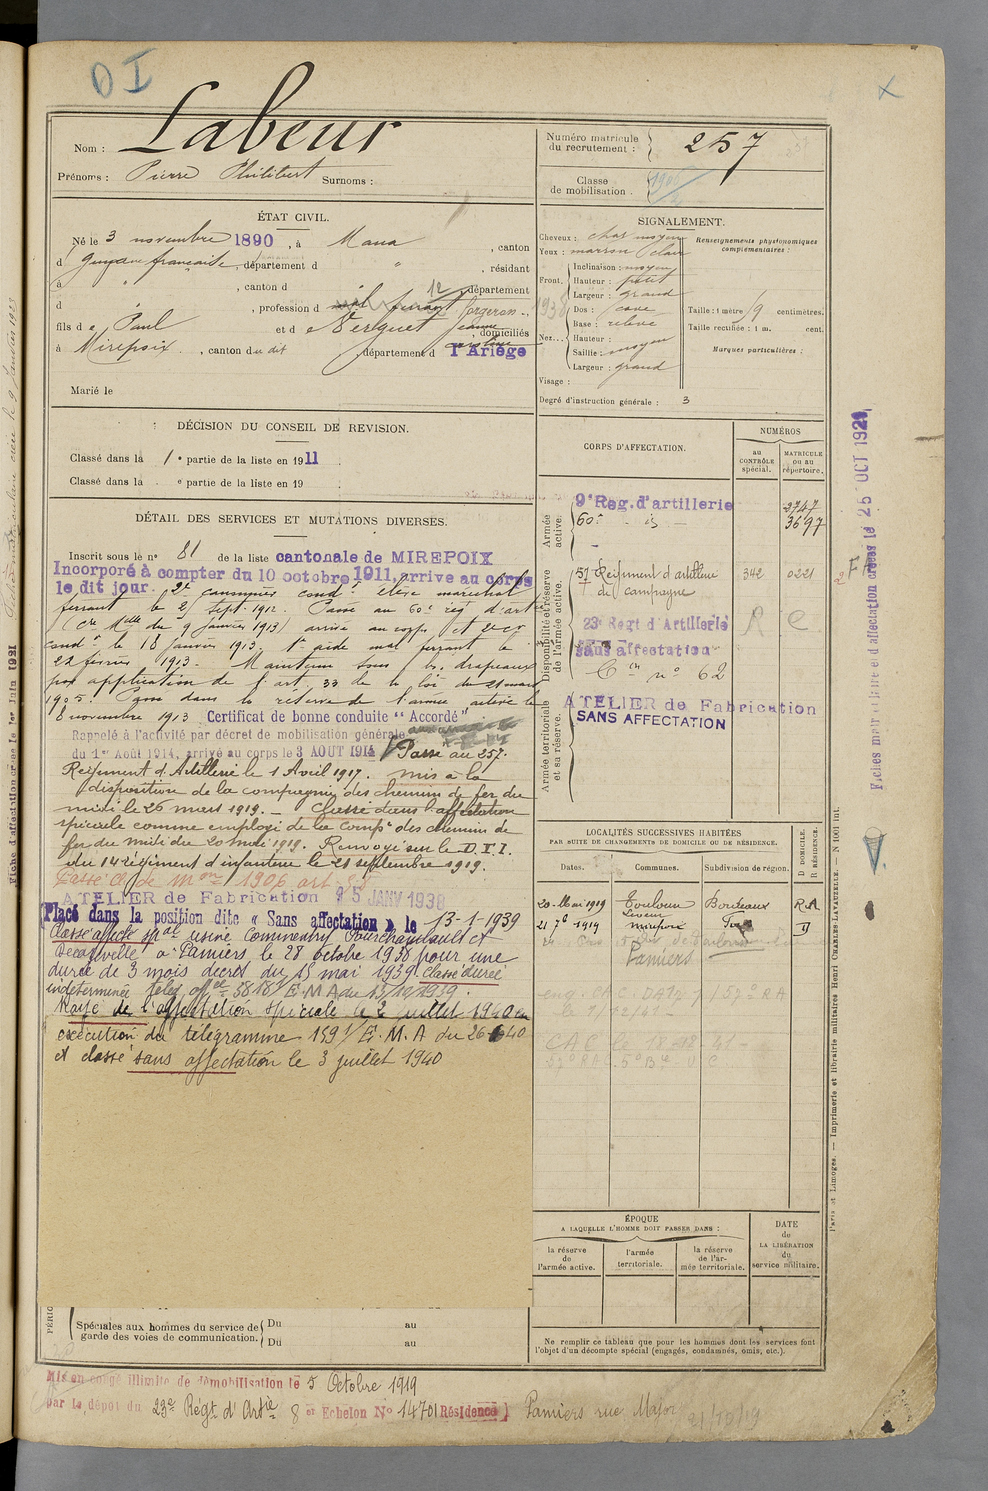 D I
Nom : Labeur
Prénoms : Pierre Philibert Surnoms :
Numéro matricule du recrutement : 257
Classe de mobilisation : 1906
ÉTAT CIVIL.
Né le 3 novembre 1890, à Mana, canton
d Guyane française, département d ", résidant
à ", canton d département
d , profession d forgeron
fils d e Paul et d e Jeanne domiciliés
à Mirepoix, canton du dit département d l'Ariège
Marié le
SIGNALEMENT.
Cheveux : chat moyen
Yeux : marron clair
Front. Inclinaison : moyen
Hauteur : petit
Largeur : grand
Nez... Dos : cave
Base : relevé
Hauteur :
Saillie : moyen
Largeur : grand
Visage :
Degré d'instruction générale : 3
Renseignements physionomiques complémentaires :
Taille : 1 mètre 59 centimètres.
Taille rectifiée : 1 m. cent.
Marques particulières :
DÉCISION DU CONSEIL DE REVISION.
Classé dans la 1e partie de la liste en 1911
Classé dans la e partie de la liste en 19
DÉTAIL DES SERVICES ET MUTATIONS DIVERSES.
Inscrit sous le n° 81 de la liste cantonale de MIREPOIX
Incorporé à compter du 10 octobre 1911, arrive au corps
le dit jour. 2e canonnier cond. élève maréchal
ferrant le 21 sept. 1912. Passé au 60e rég d'artie
(Cre Mlle du 9 janvier 1913) arrivé au corps et 2e cr
cond. le 18 janvier 1913, 1er aide mal ferrant le
22 février 1913. Maintenu sous les drapeaux
par application de l'art. 33 de la loi du 21 mars
1905. Passé dans la réserve de l'armée active le
8 novembre 1913 Certificat de bonne conduite "Accordé"
Rappelé à l'activité par décret de mobilisation générale
du 1er Août 1914, arrivé au corps le 3 AOUT 1914 Passé au 257e
Régiment d'Artillerie le 1 Avril 1917. mis à la
disposition de la compagnie des chemin de fer du
midi le 26 mars 1919. Classé dans l'affectation
spéciale comme employé de la Compie des chemin de
fer du midi du 20 mai 1919. Renvoyé sur le D.T.I.
du 14 régiment d'infanterie le 21 septembre 1919.
Passé Cl. de mon 1906 art. 58
ATELIER de Fabrication 15 JANV 1938
Placé dans la position dite « Sans affectation » le 13-1-1939
Classé affecté spal usine Commentry Fourchambault et
Decazeville à Pamiers, le 28 octobre 1938 pour une
durée de 3 mois décret du 15 mai 1939. Classé durée
indéterminée téleg. offel 3818/E.M.A du 13/10/1939.
Rayé de l'affectation spéciale le 2 juillet 1940 en
exécution du télégramme 1591/E.M.A du 26-6-40
et classé sans affectation le 3 juillet 1940
CORPS D'AFFECTATION.
NUMÉROS
au CONTRÔLE spécial.
MATRICULE ou au répertoire.
Armée active.
9e Reg. d'artillerie 2747
60e - id - 3697
Disponibilité et réserve de l'armée active.
57 Régiment d'artillerie de campagne 342 0221
23e Regt d'Artillerie
sans affectation
R C
Cm n° 62
Armée territoriale et sa réserve.
ATELIER de Fabrication
SANS AFFECTATION
LOCALITÉS SUCCESSIVES HABITÉES
PAR SUITE DE CHANGEMENTS DE DOMICILE OU DE RÉSIDENCE.
Dates. Communes. Subdivision de région. D. DOMICILE. R. RÉSIDENCE.
20-Mai 1919 Toulouse Bordeaux R.A
21 7e 1919 Mirepoix Foix D
Pamiers
ÉPOQUE
A LAQUELLE L'HOMME DOIT PASSER DANS :
la réserve de l'armée active.
l'armée territoriale.
la réserve de l'armée territoriale.
DATE de LA LIBÉRATION du service militaire.
Ne remplir ce tableau que pour les hommes dont les services font
l'objet d'un décompte spécial (engagés, condamnés, omis, etc.).
Spéciales aux hommes du service de garde des voies de communication.
Du au
Du au
Mis en congé illimité de démobilisation le 5 Octobre 1919
par le dépôt du 23e Régt d'Artie 8e Echelon No 14701 Résidence Pamiers rue Major
Fiches matricule et d'affectation créées le 25 OCT 1921.
Fiche d'affectation créée le 1er Juin 1921
Paris et Limoges. — Imprimerie et librairie militaires Henri CHARLES-LAVAUZELLE.